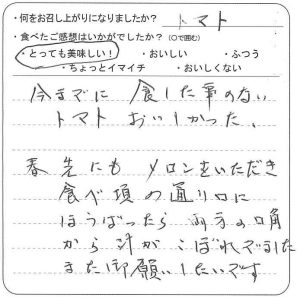 ・何をお召し上がりになりましたか？ トマト
・食べたご感想はいかがでしたか？（○で囲む）
・とっても美味しい！ ・おいしい ・ふつう
・ちょっとイマイチ ・おいしくない
今までに 食した事のない
トマト おいしかった、
春先にも メロンをいただき
食べ頃の通り口に
ほうばったら 両方の口角
から汁が こぼれでました
また御願いしたいです